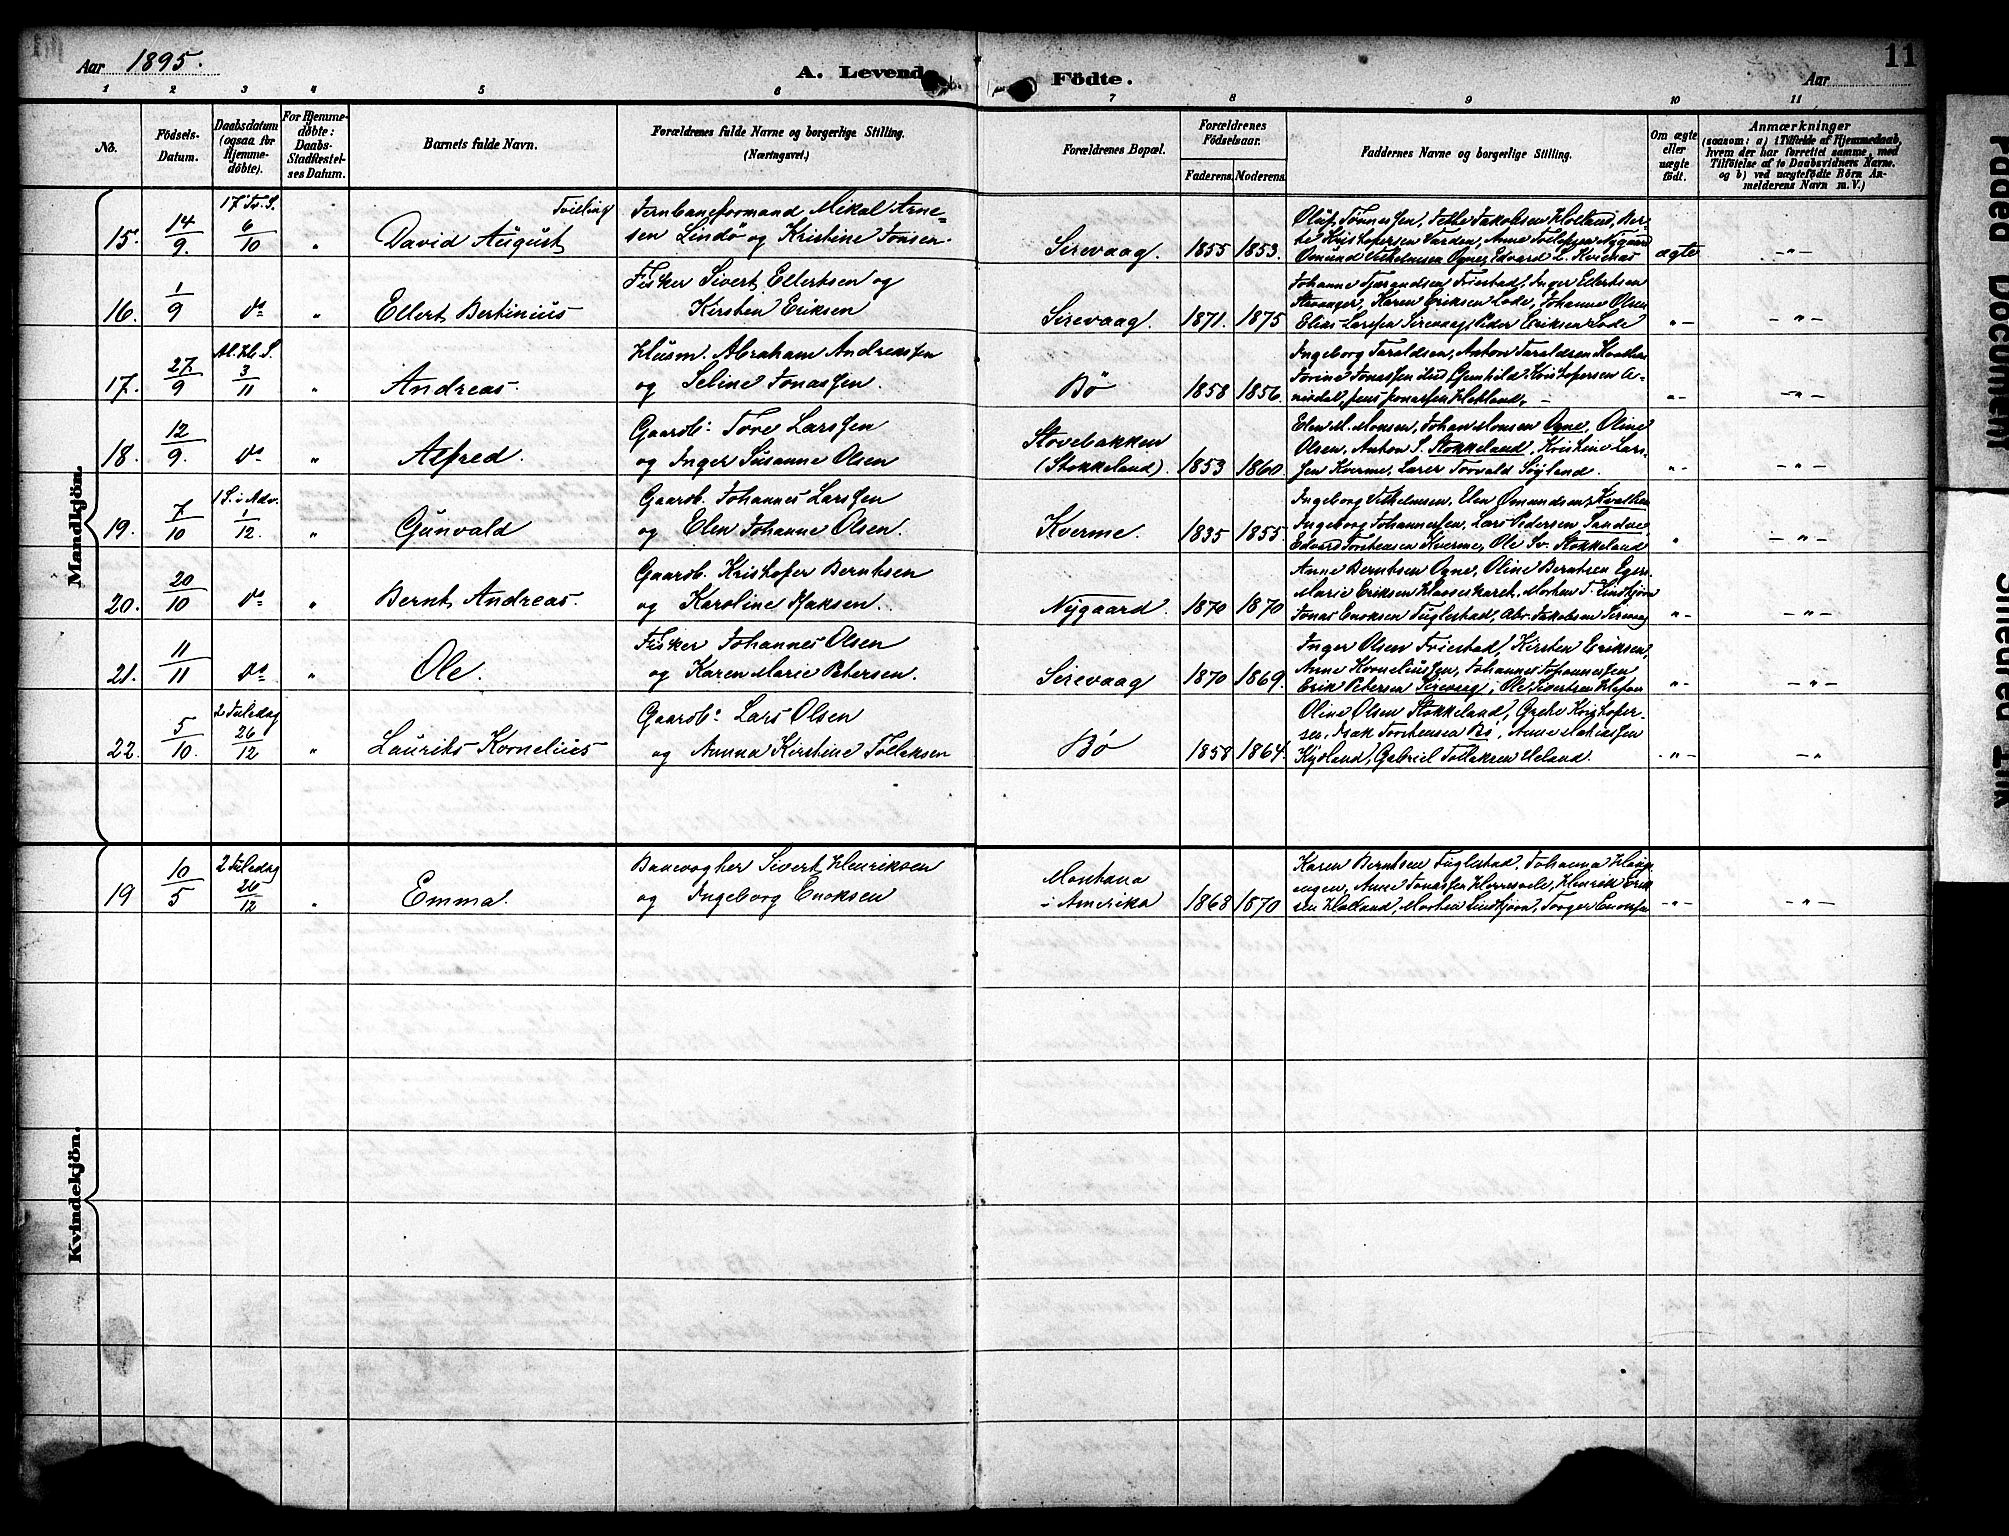 Aar 1895.
A. Levend
Födte.
Aar
11
1 2 3 4 5 6 7 8 9 10 11
No.
Födsels-
Datum.
Daabsdatum
(ogsaa for
Hjemme-
döbte).
For Hjemme-
döbte:
Daabs-
Stadfæstel-
ses Datum.
Barnets fulde Navn.
Forældrenes fulde Navne og borgerlige Stilling.
(Næringsvei.)
Forældrenes Bopæl.
Forældrenes
Födselsaar.
Faderens. Moderens.
Faddernes Navne og borgerlige Stilling.
Om ægte
eller
uægte
födt.
Anmærkninger
(saasom: a) i Tilfælde af Hjemmedaab,
hvem der har forrettet samme, med
Tilföielse af to Daabsvidners Navne.
og b) ved uægtefödte Börn An-
melderens Navn m. V.)
Mandkjön.
15. 14/9. 17 Tr. S. 6/10 " Tvilling
David August
Jernbaneformand Mikal Arne-
sen Lindö og Kristine Tonsen.
Sirevaag. 1855 1853.
Oluf Tönnessen, Jakobsen Holland, Ber-
te Kristofersen Varden, Anne Tollefsen Nygaard
Omund Vilhelmsen Ogne, Edvard L. Kvienas
ægte -"-
16. 1/9 do " Ellert Bertinius
Fisker Sivert Ellertsen og
Kirsten Eriksen
Sirevaag. 1871. 1875
Johanne Tjerandsen Friestad, Inger Ellertsen
Stavanger, Karen Eriksen Lode, Johanne Olsen
Elias Larssen Sirevaag, Peder Eriksen Lode
"- -"-
17. 27/9 Al. H. S. 3/11 " Andreas.
Husm. Abraham Andreassen
og Seline Jonassen.
Bö 1858 1856.
Ingeborg Taraldsen, Anton Taraldsen
Torine Jonassen Gunhild Kristofersen A-
rnsdal, Jens Jonassen Hetland, -
"- -"-
18. 12/9. do " Alfred.
Gaarb: Tore Larssen
og Inger Susanne Olsen
Stovebakken
(Stokkeland). 1853 1860
Elen M. Monsen, Johan Monsen Ogne, Oline
Olsen, Anton S. Stokkeland, Kristine Lars-
sen Kverme, Larer Torvald Söyland.
"- -"-
19. 7/10 1 S. i Adv. 1/12. " Gunvald
Gaarb. Johannes Larssen
og Elen Johanne Olsen.
Kverme. 1835 1855.
Ingeborg Vilhelmsen, Elen Omundsen, Kvalbein
Ingeborg Johannessen, Lars Pedersen Tandve
Edvard Torstensen Kverme, Ole Sv. Stokkeland
" -"-
20. 20/10 do " Bernt Andreas.
Gaarb. Kristofer Berntsen
og Karoline Isaksen.
Nygaard. 1870 1870
Anne Berntsen Ogne, Oline Berntsen Egers.
Marie Eriksen Morten T. Lindtjörn
Jonas Enoksen Fuglestad, Abr. Jakobsen Sirevaag
"- -"-
21. 11/11 do " Ole.
Fisker Johannes Olsen
og Karen Marie Petersen.
Sirevaag 1870 1869.
Inger Olsen Friestad, Kirsten Eriksen,
Anne Korneliussen, Johannes Johannessen
Erik Petersen Sirevaag, Ole Sivertsen
"- -"-
22. 5/10. 2 Juledag 26/12 " Laurits Kornelius
Gaarb: Lars Olsen
og Annna Kirstine Tollaksen
Bö 1858 1864.
Oline Olsen Stokkeland, Grete Kristofer-
sen, Isak Torstensen Bö, Anne Mathiassen
Kydland, Gabriel Tollaksen Ueland.
"- -"
Kvindekjön.
19 10/5 2 Juledag 26/12 " Emma.
Banevogter Sivert Henriksen
og Ingeborg Enoksen
Montana
i Amerika 1868 1870
Karen Berntsen Fuglestad, Johanna
Anne Jonassen Henrik Erik-
sen Holland, Martea Lindtjörn, Torger Enoksen
"- -"-
Faded Document
Smeared Ink